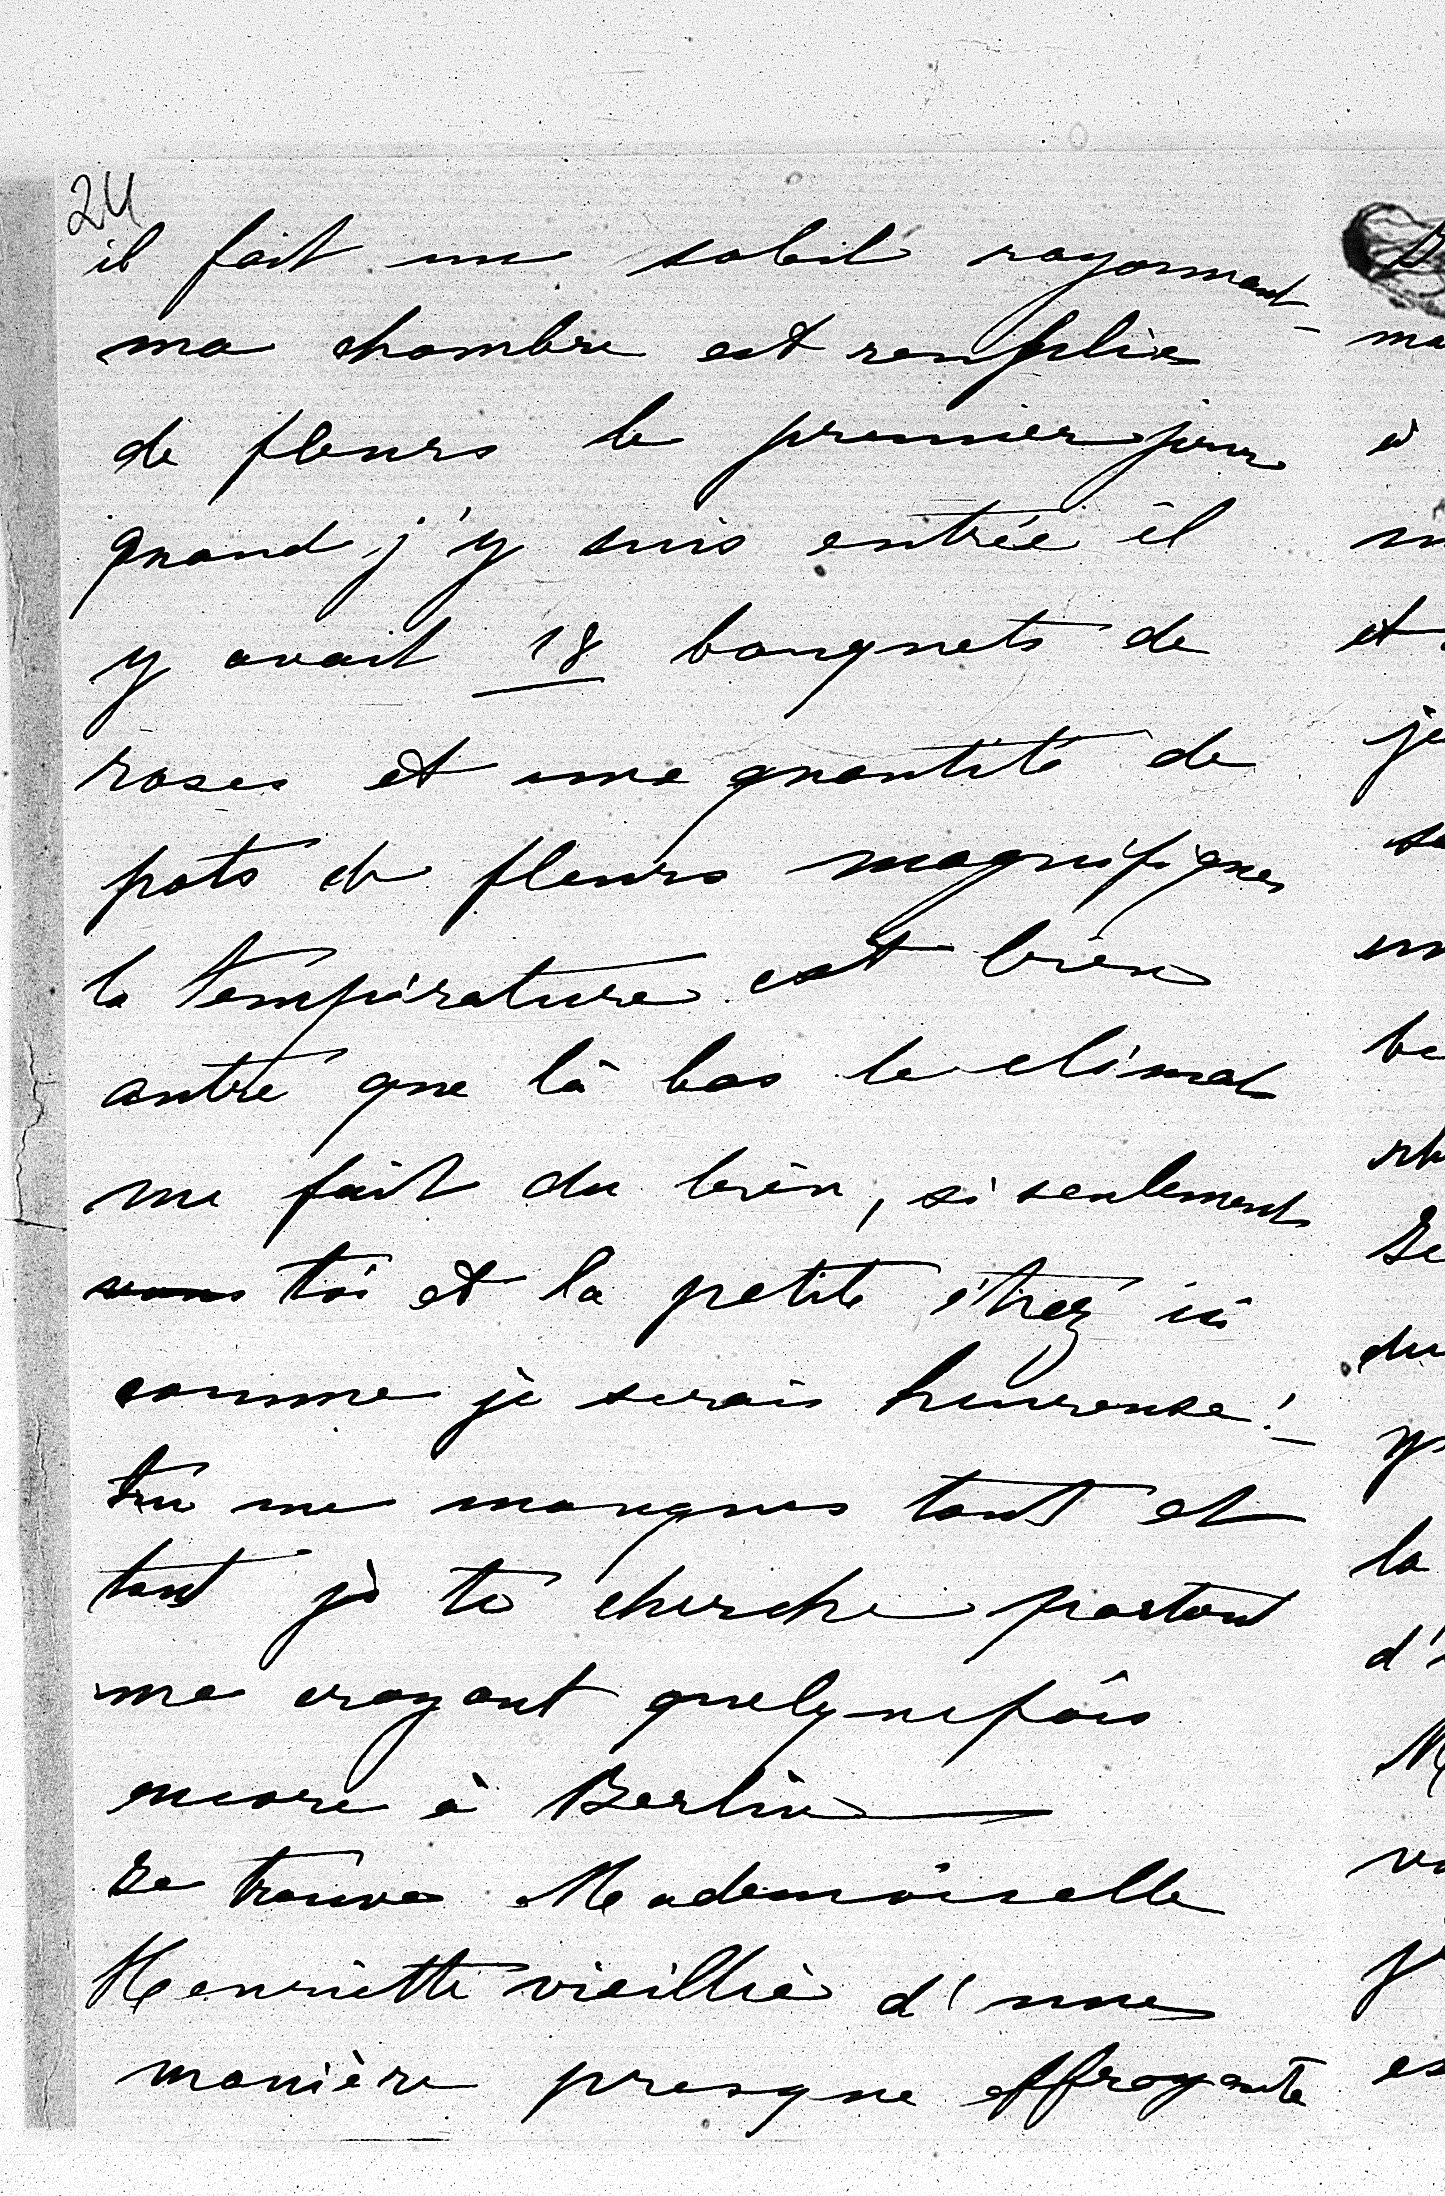 24
il fait une soleil rayonnant_
ma chambre est remplie
de fleurs le premier jour
quand j'y suis entrée il
y avait 18 bouquets de
roses et une quantité de
pots de fleurs magnifiques
la température est bien
autre que là bas le climat
me fait du bien, si seulement
toi et la petite étrez ici
comme je serais heureuse!_
tu me manques tant et
tant je te cherche partout
me croyant quelquefois
encore à Berlin —
Je trouve Mademoiselle
Henriette vieillie d'une
manière presque effroyante